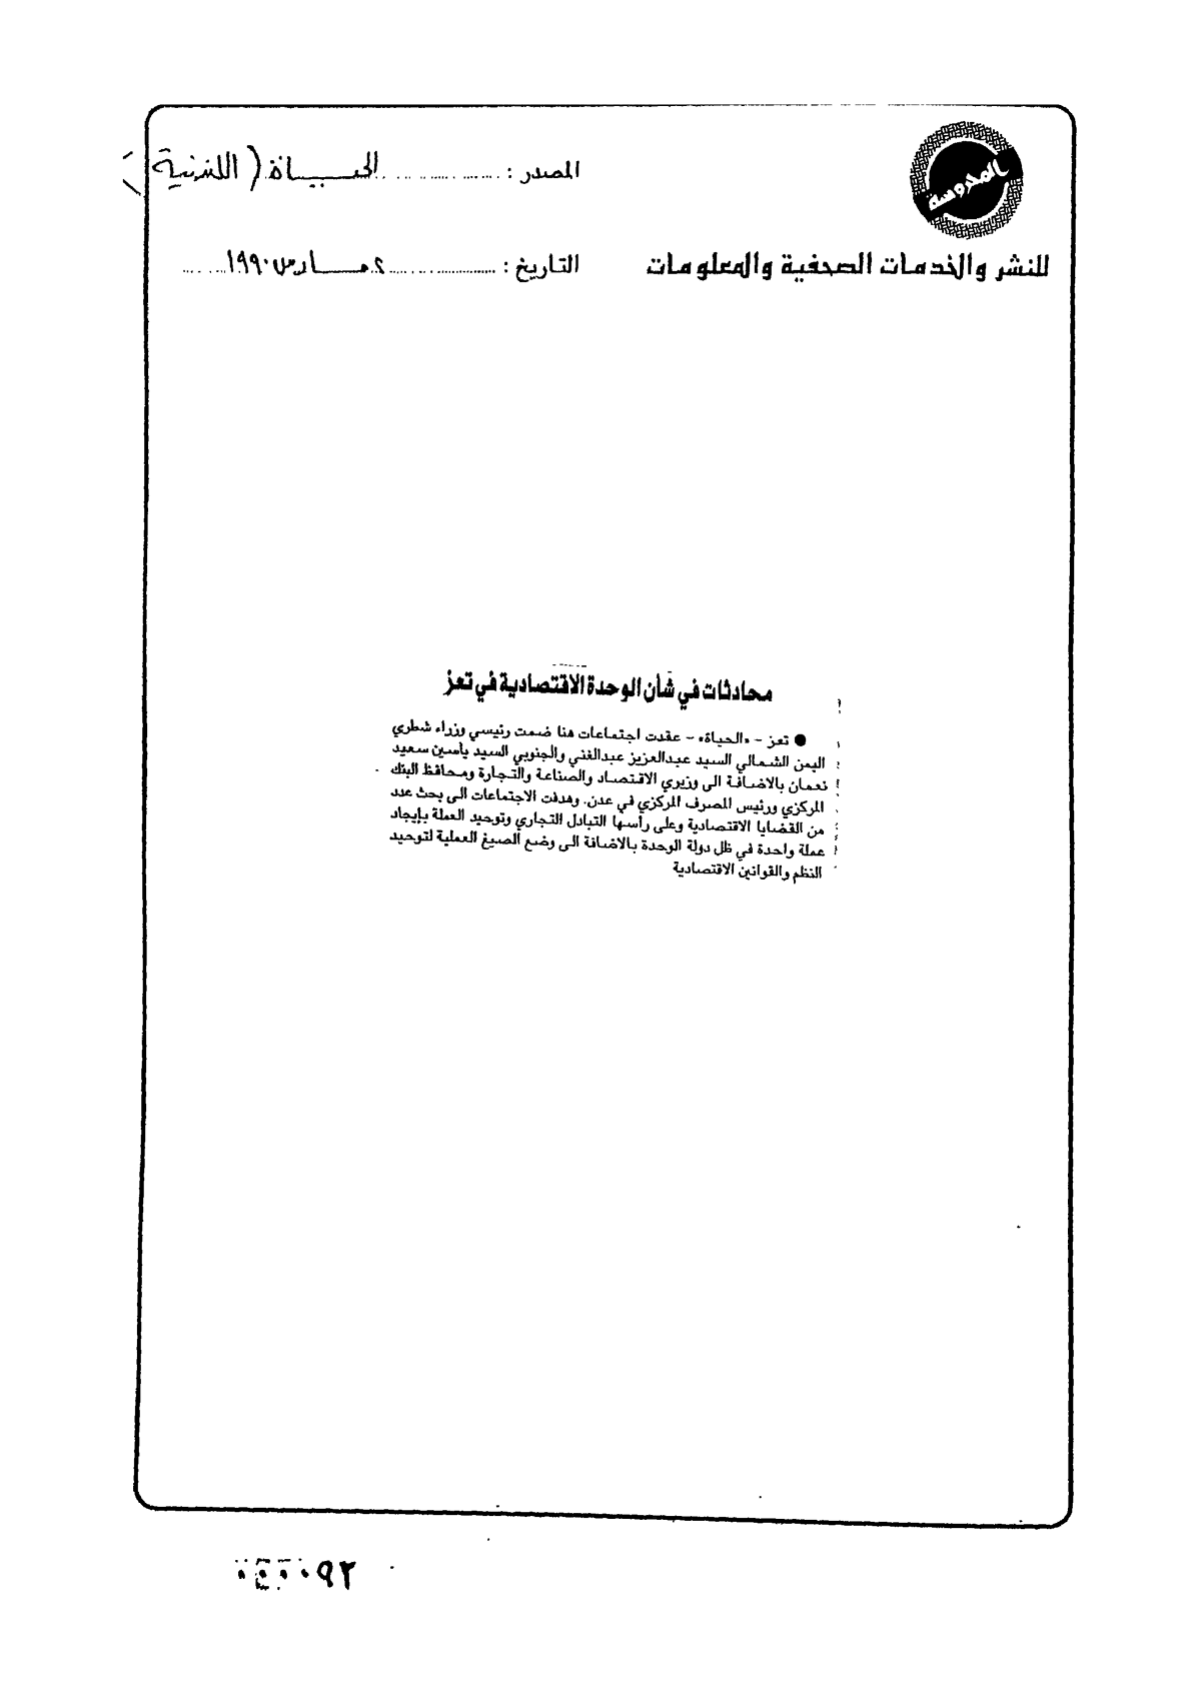 المحروسة
للنشر والخدمات الصحفية والمعلومات
المصدر : الحياة ( اللندنية )
التاريخ : ٢ مارس ١٩٩٠
محادثات في شأن الوحدة الاقتصادية في تعز
● تعز - «الحياة» - عقدت اجتماعات هنا ضمت رئيسي وزراء شطري
اليمن الشمالي السيد عبدالعزيز عبدالغني والجنوبي السيد ياسين سعيد
نعمان بالاضافة الى وزيري الاقتصاد والصناعة والتجارة ومحافظ البنك
المركزي ورئيس المصرف المركزي في عدن. وهدفت الاجتماعات الى بحث عدد
من القضايا الاقتصادية وعلى رأسها التبادل التجاري وتوحيد العملة بإيجاد
عملة واحدة في ظل دولة الوحدة بالاضافة الى وضع الصيغ العملية لتوحيد
النظم والقوانين الاقتصادية